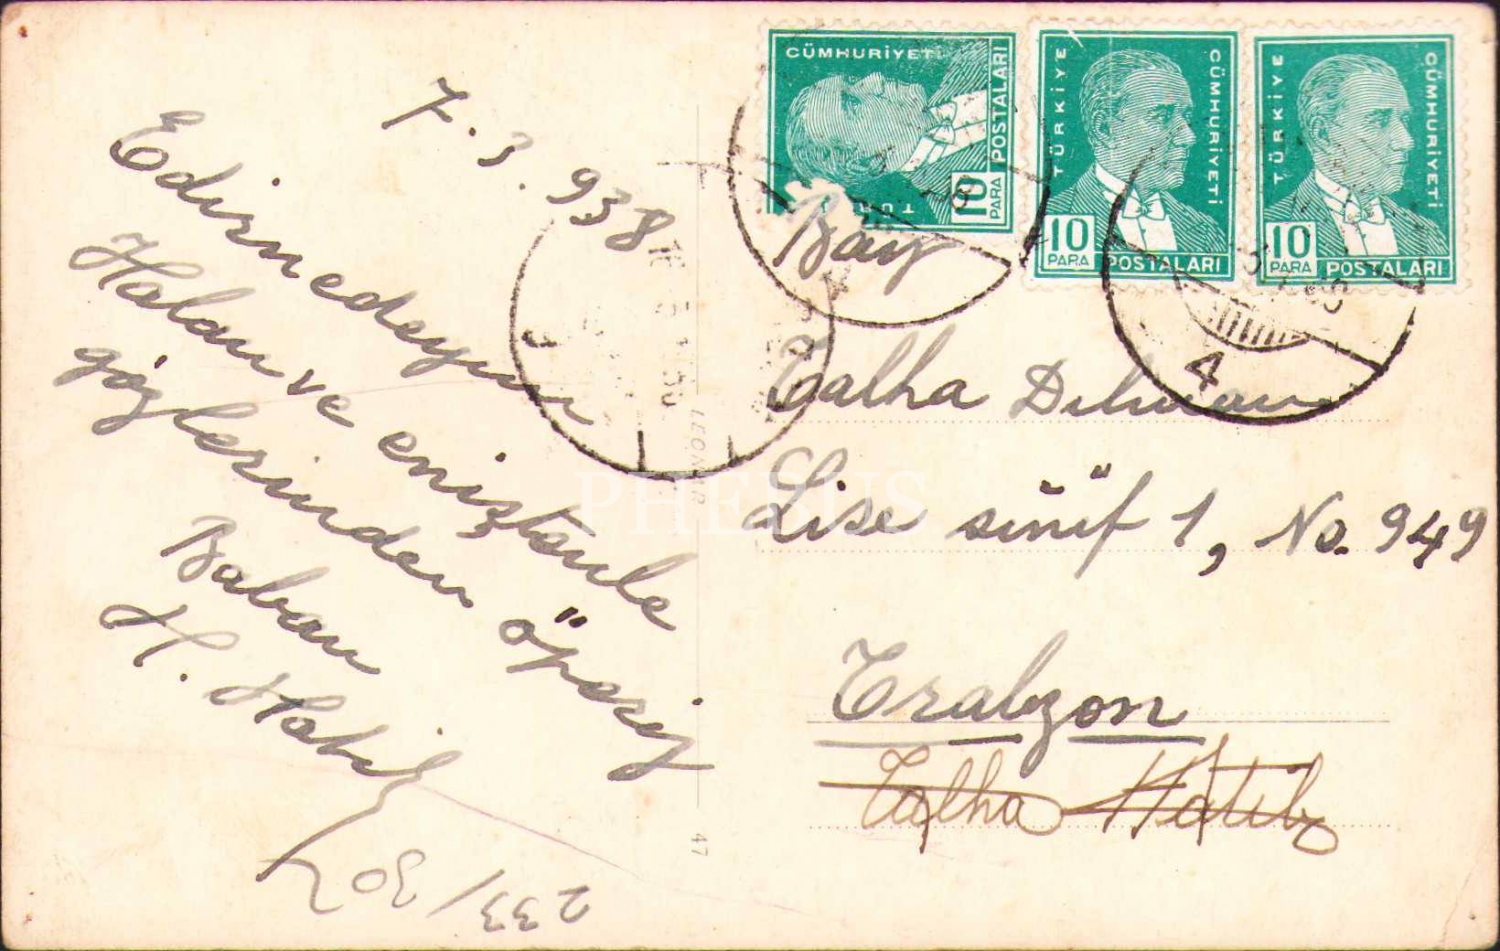 7.3.938
Edirnedeyim
Halan ve eniştenle
gözlerinden öperiz
Baban
H. Hatib
233/30
CÜMHURİYETİ
POSTALARI
10
PARA
TÜR
TÜRKİYE
CÜMHURİYETİ
10
PARA
POSTALARI
TÜRKİYE
CÜMHURİYETİ
10
PARA
POSTALARI
4
Bay
Talha Dilman
Lise sınıf 1, No. 949
Trabzon
Talha Hatib
LEONAR
47
PHEBUS